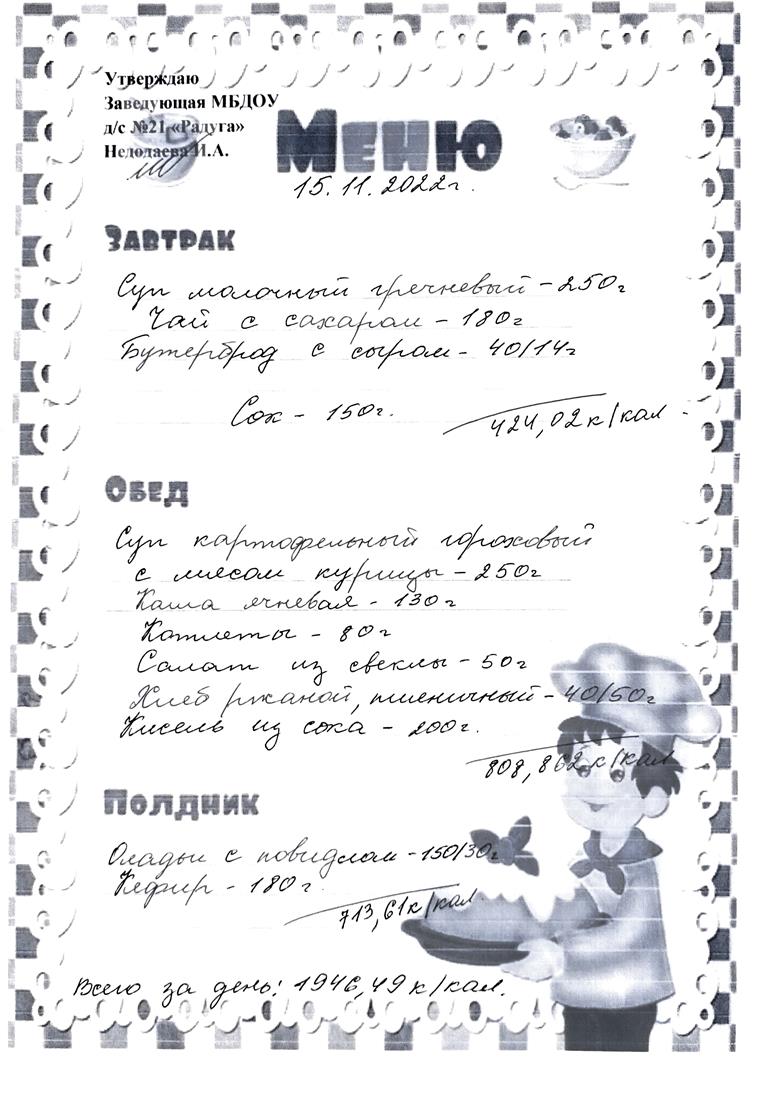 Утверждаю
Заведующая МБДОУ
д/с №21 «Радуга»
Недодаева И.А.
Меню
15.11.2022г.
Завтрак
Суп молочный гречневый - 250г
Чай с сахаром - 180г
Бутерброд с сыром - 40/14г
Сок - 150г.
424,02 к/кал
Обед
Суп картофельный гороховый
с мясом курицы - 250г
Каша ячневая - 130г
Котлеты - 80г
Салат из свеклы - 50г
Хлеб ржаной, пшеничный - 40/50г
Кисель из сока - 200г.
808,862 к/кал
Полдник
Оладьи с повидлом - 150/30г
Кефир - 180г.
713,61 к/кал
Всего за день: 1946,49 к/кал.